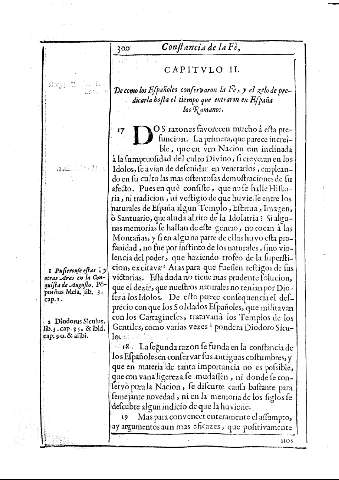 300 Constancia de la Fè,
CAPITVLO II.
De como los Españoles conservaron la Fè, y el zelo de pre-
dicarla hasta el tiempo que entraron en España
los Romanos.
17 DOS razones favorecen mucho à esta pre-
suncion. La primera, que parece increi-
ble, que en vna Nacion tan inclinada
à la sumptuosidad del culto Divino, si creyeran en los
Idolos, se avian de descuidar en venerarlos, empleando
en su culto las mas ostentosas demostraciones de su
afecto. Pues en què consiste, que no se halle Histo-
ria, ni tradicion, ni vestigio de que huviesse entre los
naturales de España algun Templo, Estatua, Imagen,
ò Santuario, que aluda al rito de la Idolatria? Si algu-
nas memorias se hallan de este genero, no tocan à las
Montañas, y si en alguna parte de ellas huvo esta pro-
fanidad, no fue por instinto de los naturales, sino vio-
lencia del poder, que haziendo trofeo de la supersti-
cion, excitava Aras para que fuessen testigos de sus
victorias. Ella duda no tiene mas prudente solucion,
que el dezir, que nuestros naturales no tenian por Dio-
ses los Idolos. De esta parece consequencia el des-
precio con que los Soldados Españoles, que militavan
con los Cartagineses, trataván à los Templos de los
Gentiles, como varias vezes pondera Diodoro Sicu-
lo.
18. La segunda razon se funda en la constancia de
los Españoles en conservar sus antiguas costumbres, y
que en materia de tanta importancia no es possible,
que con vana ligereza se mudassen, ni donde se con-
servò para la Nacion, se discurre causa bastante para
semejante novedad, ni en la memoria de los siglos se
descubre algun indicio de que la huviesse.
19 Mas para convencer enteramente el assumpto,
ay argumentos aun mas eficazes, que positivamente
mos
1 Pusieronse estas, y
otras Aras en la Con-
quista de Augusto, Põ-
ponius Mela, lib. 3.
cap. 1.
2 Diodorus Siculus,
lib. 5. cap. 35. & ibid.
cap. 90. & alibi.